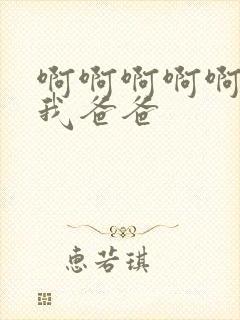 啊啊啊啊啊
我爸爸
惠若琪